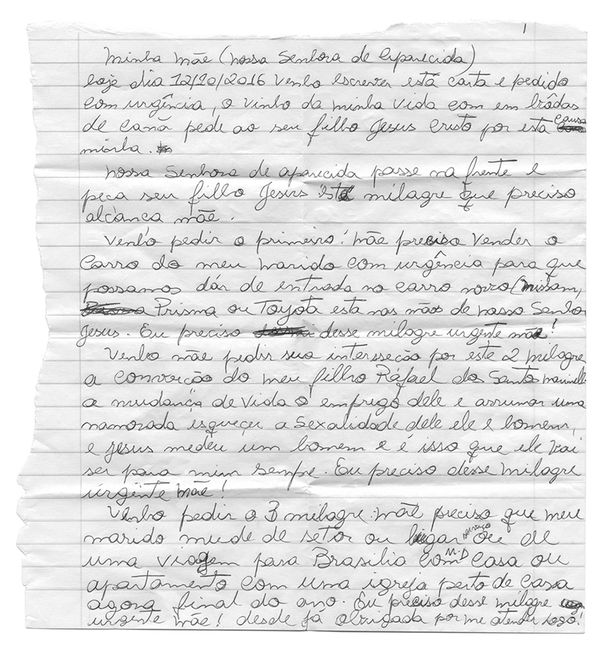 1
Minha mãe (nossa Senhora de Aparecida)
hoje dia 12/10/2016 Venho Escrever está carta e pedido
com urgência, o vinho da minha vida com em bôdas
de canã pede ao seu filho Jesus Cristo por esta causa
minha.
Nossa Senhora de aparecida passe na frente e
peça seu filho Jesus milagre que preciso
alcança mãe.
Venho pedir o primeiro: mãe preciso Vender o
Carro do meu marido com urgência para que
possamos dár de entrada no carro novo (nissam,
Prisma ou Toyota esta nas mãos de nosso Senho
Jesus. Eu preciso desse milagre urgente mãe!
Venho mãe pedir sua intersseção por este 2 milagre
a convorção do meu filho Rafael dos Santo
a mudança de vida o emprego dele e arrumar uma
namorada isqueçer a Sexalidade dele ele e homem,
e Jesus medeu um homem e é isso que ele vai
ser para mim sempre. Eu preciso desse milagre
urgente mãe!
Venho pedir o 3 milagre: mãe preciso que meu
marido mude de setor ou lugar ou de
uma viagem para Brasilia com casa ou
apartamento com uma igreja perto de casa
agora final do ano. Eu preciso desse milagre
urgente mãe! desde já obrigada por me atender logo!